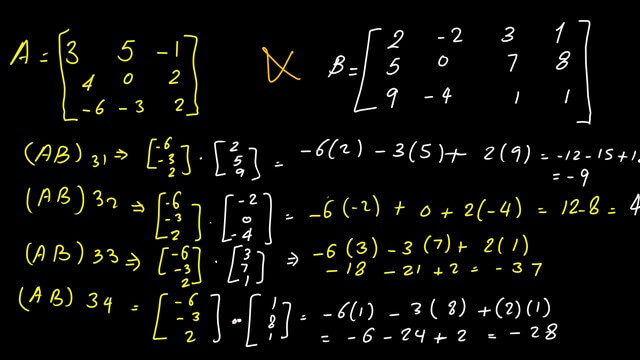 A = [3 5 -1] ∝ B = [2 -2 3 1]
[4 0 2] [5 0 7 8]
[-6 -3 2] [9 -4 1 1]
(AB) 31 ⇒ [-6 -3 2] · [2 5 9] = -6(2) - 3(5) + 2(9) = -12 - 15 + 1
= -9
(AB) 32 ⇒ [-6 -3 2] · [-2 0 -4] = -6(-2) + 0 + 2(-4) = 12 - 8 = 4
(AB) 33 ⇒ [-6 -3 2] · [3 7 1] ⇒ -6(3) - 3(7) + 2(1)
-18 - 21 + 2 = -37
(AB) 34 = [-6 -3 2] · [1 8 1] = -6(1) - 3(8) + (2)(1)
= -6 - 24 + 2 = -28